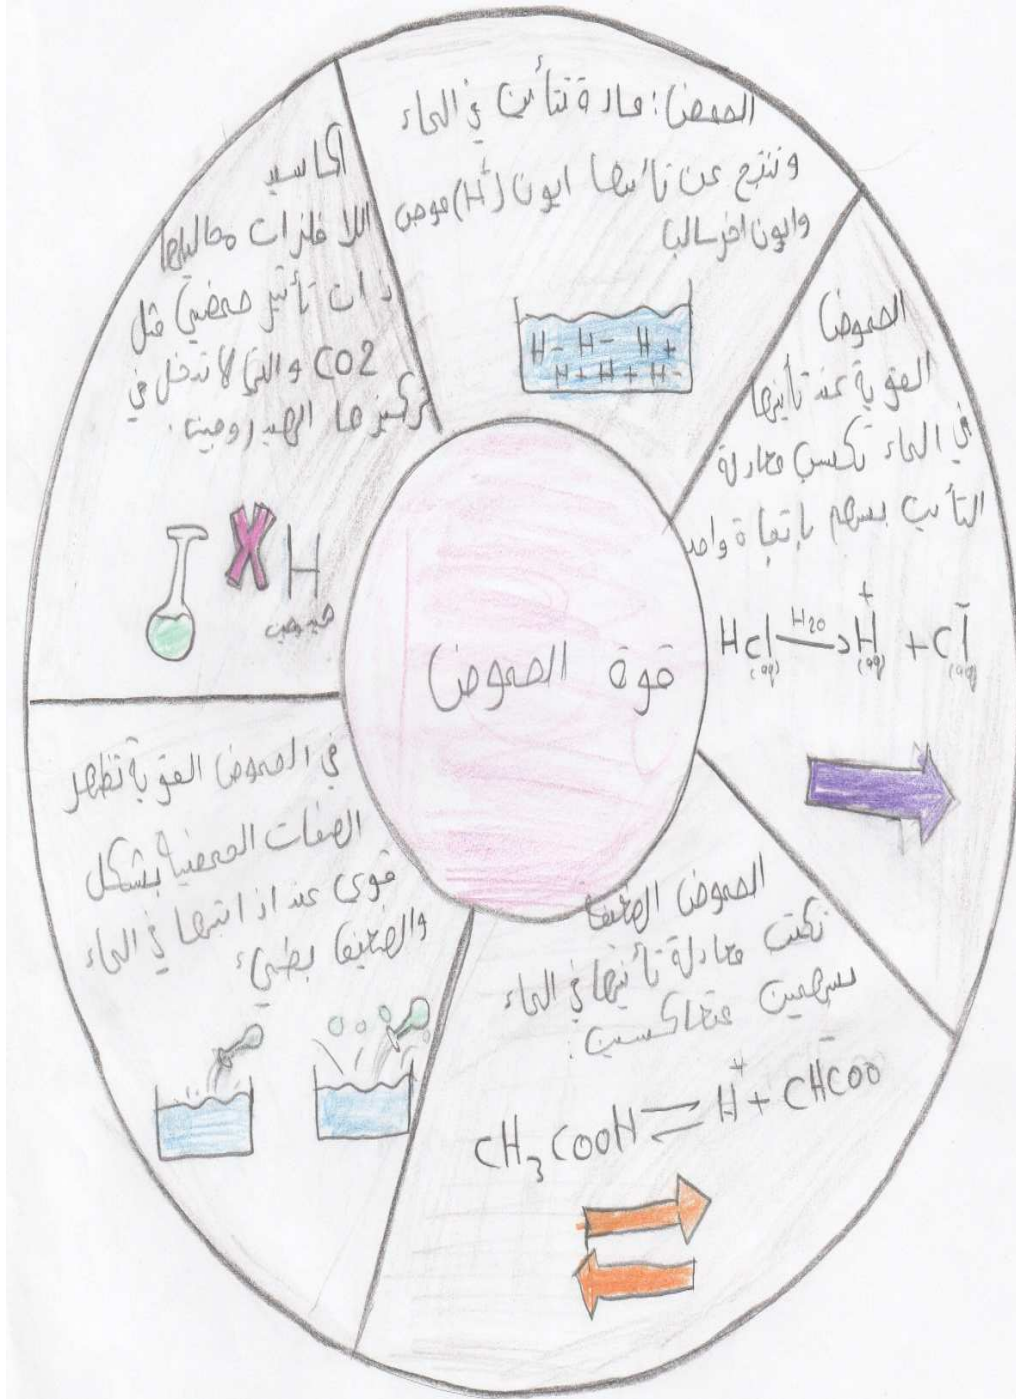 قوة الحموض
الحمض: مادة تتأين في الماء
وتنتج عن تأينها ايون (H+) موجب
وايون اخر سالب
H- H- H+
H+ H+ H-
الحموض
القوية عند تأينها
في الماء تكتب معادلة
التأين بسهم بإتجاة واحد
HCl (aq) H2O → H+ (aq) + Cl- (aq)
الحموض الضعيفة
تكتب معادلة تأينها في الماء
بسهمين متعاكسين:
CH3COOH ⇌ H+ + CHCOO-
في الحموض القوية تظهر
الصفات الحمضية بشكل
قوي عند اذابتها في الماء
والضعيفة بطيء
اكاسيد
اللا فلزات محاليلها
ذات تأثير حمضي مثل
CO2 والتي لا تدخل في
تركيزها الهيدروجين.
X H